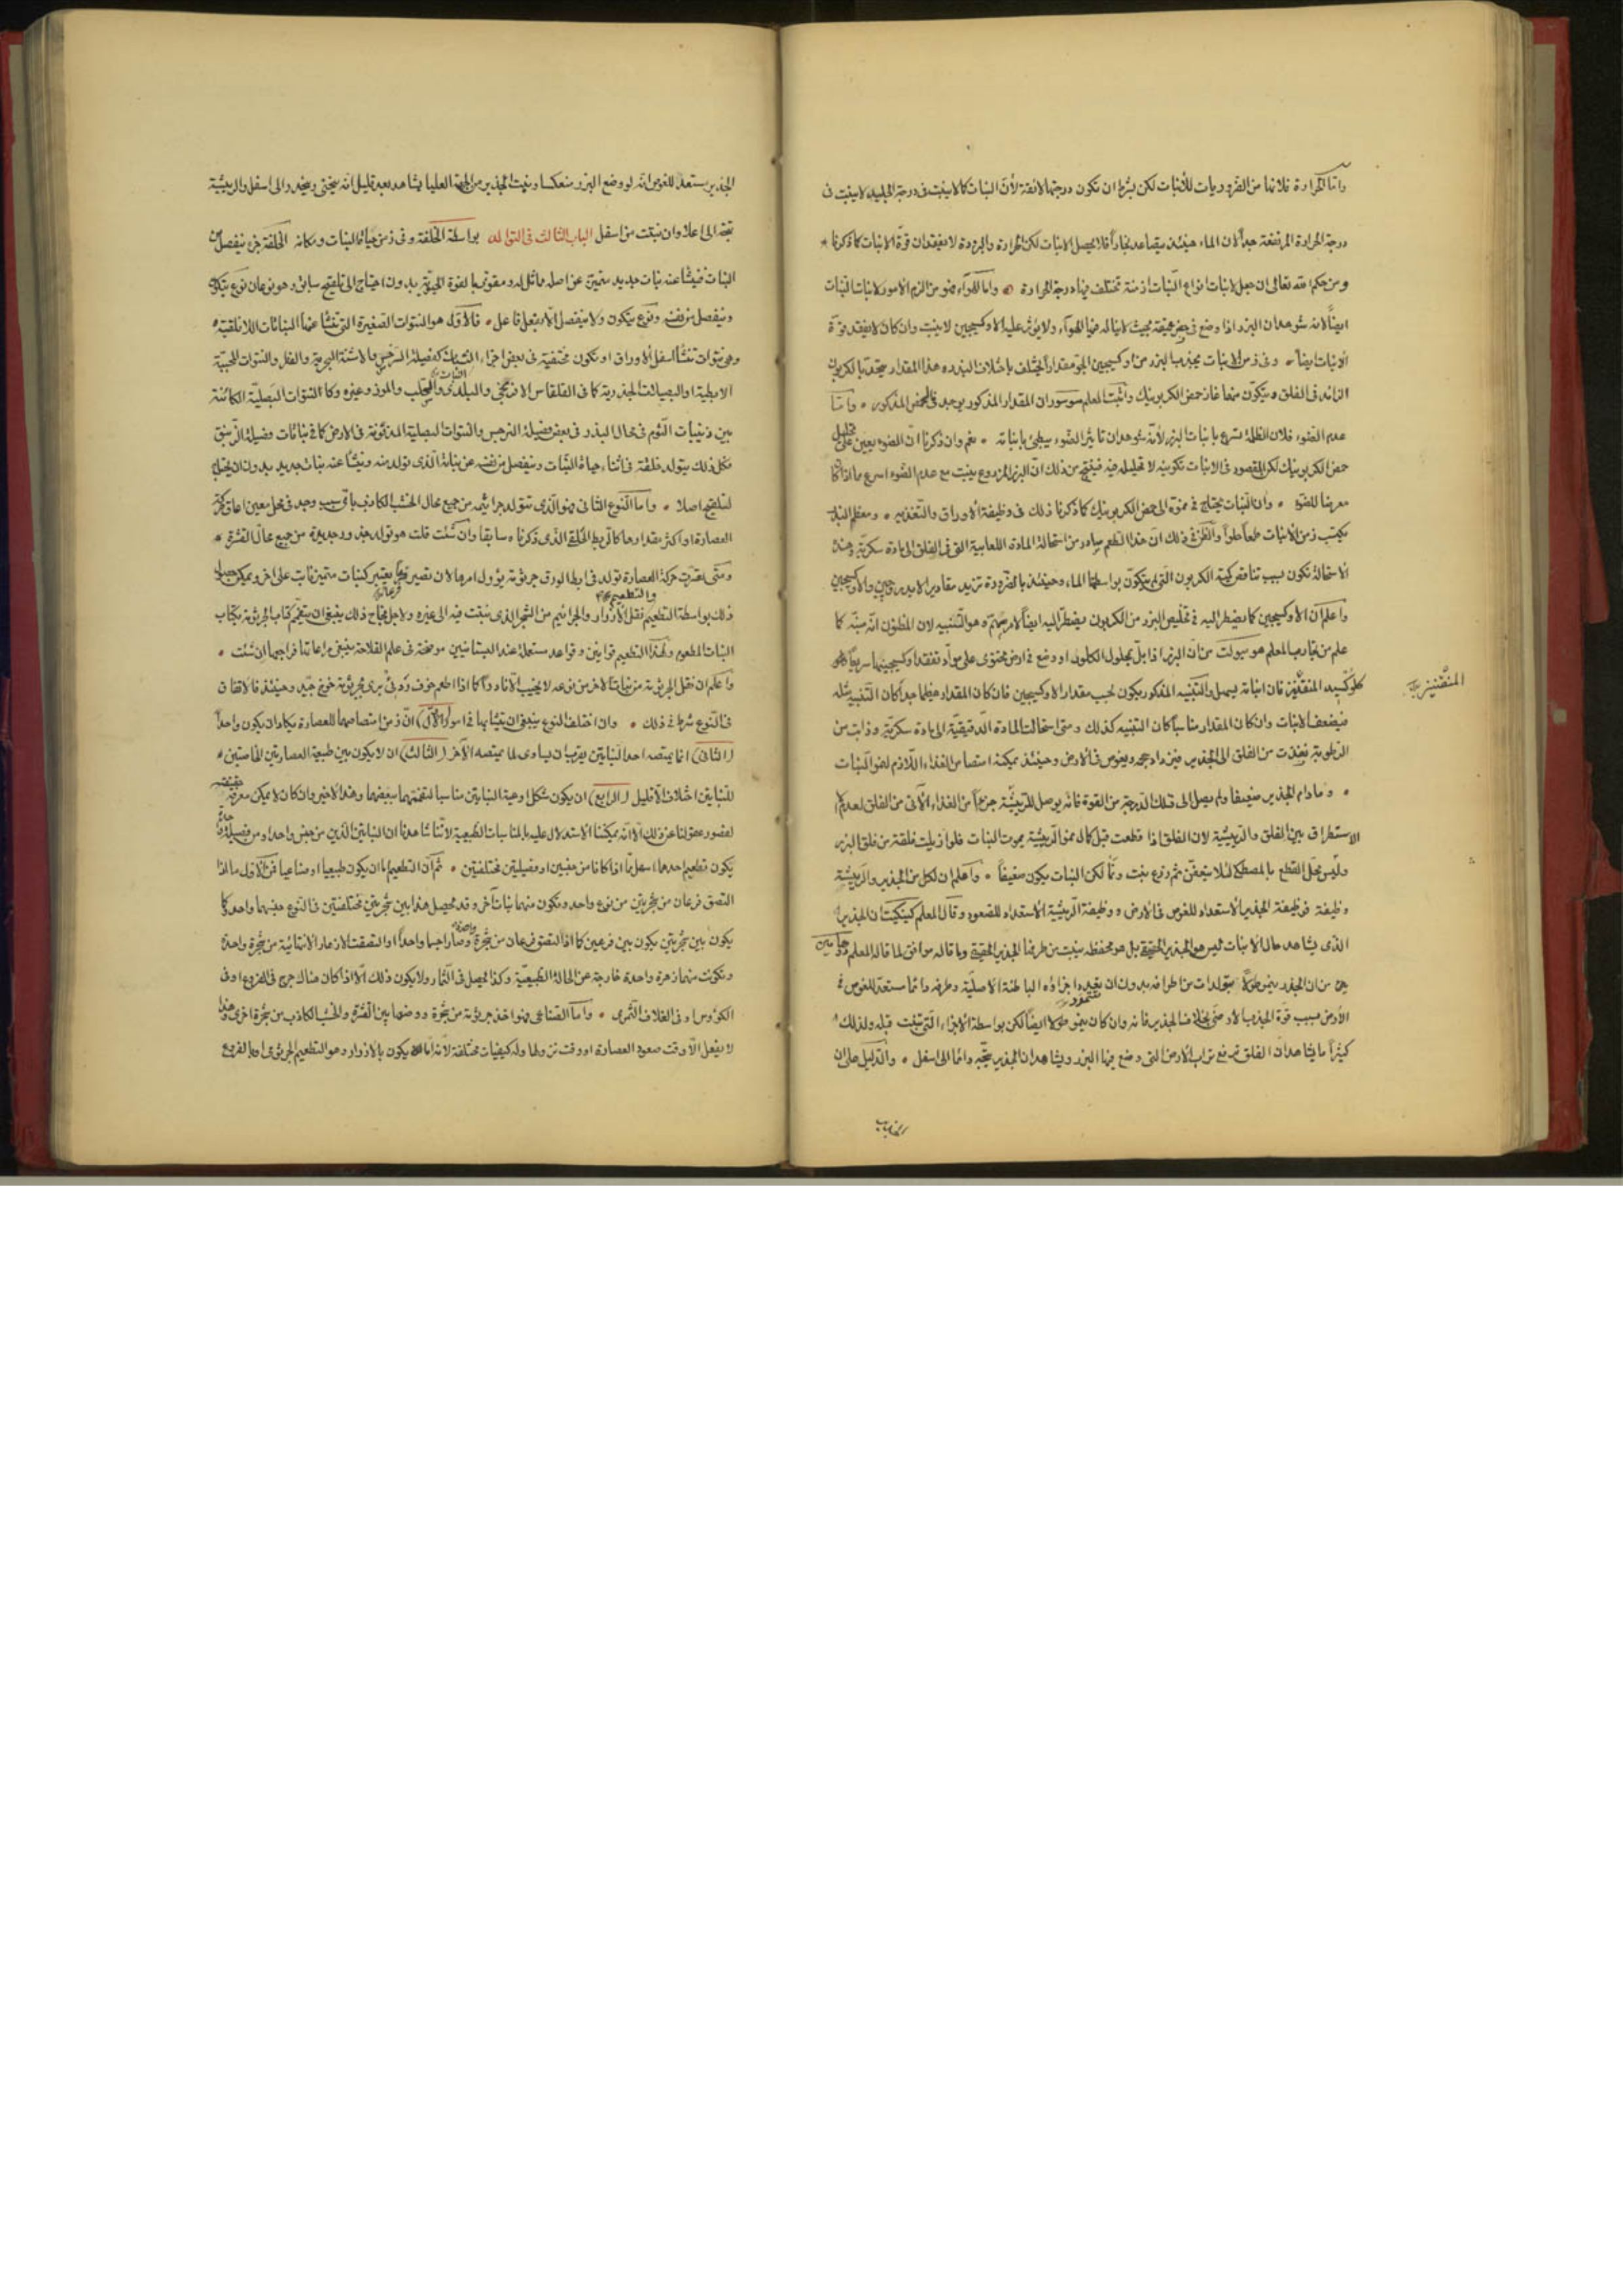 واما الحرارة فلانها من الضروريات للانبات لكن بشرط ان تكون درجتها لائقة لأن النبات كما لا ينبت في درجة الجليد لا ينبت في
درجة الحرارة المرتفعة جداً لان الماء حينئذ يتصاعد بخاراً فلا يحصل الانبات لكن الحرارة والبرودة لا تفقدان قوة الانبات كما ذكرنا
ومن حكم الله تعالى ان جعل لانبات انواع النباتات ازمنة تختلف فيها درجة الحرارة واما الهواء فهو من الزم الامور لانبات النبات
ايضاً لانه شوهد ان البزر اذا وضع في حفر عميقة بحيث لا يناله فيها الهواء ولا يؤثر عليه الاوكسيجين لا ينبت وان كان لا يفقد قوة
الانبات ايضاً وفي زمن الانبات يجذب البزر من اوكسيجين الجو مقداراً يختلف باختلاف البذر وهذا المقدار يتحد بالكربون
الزائد في الفلق ويتكون منهما غاز حمض الكربونيك واثبت المعلم سوسور ان المقدار المذكور يوجد في الحمض المذكور واما
عدم الضوء فلان الظلمة تسرع بانبات البزر لأنه شوهد ان تأثير الضوء يبطئ بانباته نعم وان ذكرنا ان الضوء يعين على تحليل
حمض الكربونيك لكن المقصود في الانبات تكوينه لا تحليله فينتج من ذلك ان البزر المزروع ينبت مع عدم الضوء اسرع مما اذا كان
معرضا للضوء وان النبات يحتاج في نموه الى حمض الكربونيك كما ذكرنا ذلك في وظيفة الاوراق والتغذية ومعظم البذر
يكتسب زمن الانبات طعماً حلواً والظن في ذلك ان هذا الطعم صادر من استحالة المادة اللعابية التي في الفلق الى مادة سكرية وهذه
الاستحالة تكون بسبب تناقص كمية الكربون التي يتكون بواسطتها الماء وحينئذ بالضرورة تزيد مقادير الايدروجين والاوكسيجين
واعلم ان الاوكسيجين كما يضطر اليه في تخليص البزر من الكربون يضطر اليه ايضاً لامر مهم وهو التنبيه لان المظنون انه منبه كما
علم من تجارب المعلم هومبولت من ان البزر اذا بل بمحلول الكلور او وضع في ارض محتوى على مواد تفقد اوكسيجينها سريعاً
كلوكسيد المنقنيز فان انباته يسهل والتنبيه المذكور يكون بحسب مقدار الاوكسيجين فان كان المقدار عظيما جداً كان التنبيه مثله
المنقنيز
فيضعف الانبات وان كان المقدار مناسباً كان التنبيه كذلك ومتى استحالت المادة الدقيقية الى مادة سكرية وذابت من
الرطوبة نفذت من الفلق الى الجذير فيزداد حجمه ويغوص في الارض وحينئذ يمكنه امتصاص الغذاء اللازم لنمو النبات
وما دام الجذير ضعيفا ولم يصل الى تلك الدرجة من القوة فانه يوصل للريشة جزءاً من الغذاء الآتي من الفلق لعدم
الاستطراق بين الفلق والريشة لان الفلق اذا قطعت قبل كمال نمو الريشة يموت النبات فلو ازيلت فلقة من فلق البزر
ودهن محل القطع بالمصطكى لئلا يتعفن ثم زرع ينبت ونما لكن النبات يكون ضعيفاً واعلم ان لكل من الجذير والريشة
وظيفة فوظيفة الجذير الاستعداد للغوص في الارض ووظيفة الريشة الاستعداد للصعود وقال المعلم ان الجذير
الذي يشاهد حال الانبات ليس هو الجذير الحقيقي بل هو محفظة ينبت من طرفها الجذير الحقيقي وما قاله موافق لما قاله المعلم
من ان الجذر ينمو طولاً بتولدات من اطرافه بدون ان اجزاؤه الباطنة الاصلية وطرفه دائما مستعد للغوص في
الأرض بسبب قوة الجذب الارضي بخلاف الجذير فانه وان كان ينمو طولا ايضاً لكن بواسطة الاجزاء التي تنبت قبله ولذلك
كثيراً ما يشاهد ان الفلق ترفع تراب الارض التي وضع فيها البزر ويشاهد ان الجذير يتجه دائما الى اسفل والدليل على ان
الجذير
الجذير يستعد للغوص انه لو وضع البزر منعكسا ونبت الجذير من الجهة العليا يشاهد بعد قليل انه ينحني وينحدر الى اسفل والريشة
تتجه الى اعلا وان نبتت من اسفل الباب الثالث في التوالد بواسطة الخلفة وفي زمن حياة النبات ومكانه الخلفة جزء ينفصل من
النبات فينشأ عنه نبات جديد متميز عن اصله مماثل له ومقوى بالقوة الحيوية بدون احتياج الى تلقيح سابق وهو نوعان نوع يتكون
وينفصل بنفسه ونوع يتكون ولا ينفصل الا بفعل فاعل فالاول هو النتوات الصغيرة التي تنشأ عنها النباتات اللا فلقية
وهي نتوات تنشأ اسفل الاوراق او تكون مختفية في بعض اجزاء النبات كفصيلة السرخس والاشنة البحرية والفطر والنتوات الحبيبة
الابطية او البصيلات الجذرية كما في القلقاس الافرنجي والبلدي والثعلب والموز وغيره وكالنتوات البصلية الكائنة
بين زنيبات الثوم في محال البذر في بعض فصيلة النرجس والنتوات البصلية المدفونة في الارض كما في نباتات فصيلة الزنبق
فكل ذلك يتولد خلقة في اثناء حياة النبات وينفصل بنفسه عن نباته الذي تولد منه وينشأ عنه نبات جديد بدون ان يحتاج
لتلقيح اصلا واما النوع الثاني فهو الذي تتولد جراثيمه من جميع محال الخشب الكاذب باي سبب وجد في محل معين اعاق حركة
العصارة او اكثر مقدارها كالربط الحلقي الذي ذكرناه سابقا وان شئت قلت هو تولد جذور جديدة من جميع محال القشرة
ومتى تعذرت حركة العصارة تولد في ابط الورق جرثومة يؤول امرها لان تصير فرعاً يعتبر كنبات متميز ثابت على اخر ويمكن
ذلك بواسطة التطعيم والتطعيم نقل الازرار والجراثيم من الشجر الذي نبتت فيه الى غيره ولاجل نجاح ذلك ينبغي ان
النبات المطعوم ولهذا التطعيم قوانين وقواعد مستعملة عند البستانيين موضحة في علم الفلاحة ينبغي مراعاتها فراجعها ان شئت
واعلم ان نقل الجرثومة من نبات لآخر من نوعه لا يخيب الا نادراً كما اذا طعم خوخ بري بجرثومة خوخ جيد وحينئذ فالاتفاق
في النوع شرط في ذلك وان اختلف النوع ينبغي ان يتشابها في امور (الاول) ان زمن امتصاصهما للعصارة يكاد ان يكون واحداً
(الثاني) ان ما يمتصه احد النباتين يقرب ان يساوي لما يمتصه الآخر (الثالث) ان لا يكون بين طبيعة العصارتين الخاصتين
للنباتين اختلاف الا قليل (الرابع) ان يكون شكل اوعية النباتين مناسبا لبعضهما وهذا الاخير وان كان لا يمكن معرفة حقيقته
لقصور عقولنا عن ذلك الا انه يمكننا الاستدلال عليه بالمناسبات الطبيعية لاننا شاهدنا ان النباتين الذين من جنس واحد او من فصيلة واحدة
يكون تطعيم احدهما اسهل مما اذا كانا من جنسين او فصيلتين مختلفتين ثم ان التطعيم اما ان يكون طبيعيا او صناعيا فمن الاول ما اذا
التصق فرعان من شجرتين من نوع واحد وتكون منهما نبات آخر وقد يحصل هذا بين شجرتين مختلفتين في النوع جنسهما واحد كما
يكون بين شجرتين يكون بين فرعين كما اذا التصق فرعان من شجرة واحدة وصارا جسما واحداً او التصقت الازهار الانتهائية من شجرة واحدة
وتكونت منها زهرة واحدة خارجة عن الحالة الطبيعية وكذا يحصل في الثمار ولا يكون ذلك الا اذا كان هناك جرح في الفروع او في
الكؤوس او في الغلاف الثمري واما الصناعي فهو اخذ جرثومة من شجرة ووضعها بين القشرة والخشب الكاذب من شجرة اخرى وهذا
لا يفعل الا وقت صعود العصارة او وقت نزولها وله كيفيات مختلفة لانه اما ان يكون بالازرار وهو التطعيم الجرثومي او بالفروع